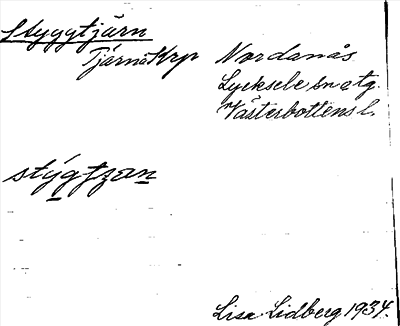 Styggtjärn
Tjärn Krp Nordanås
Lycksele sn o tg.
Västerbottens l.
stýgtzan
Lisa Lidberg 1934.